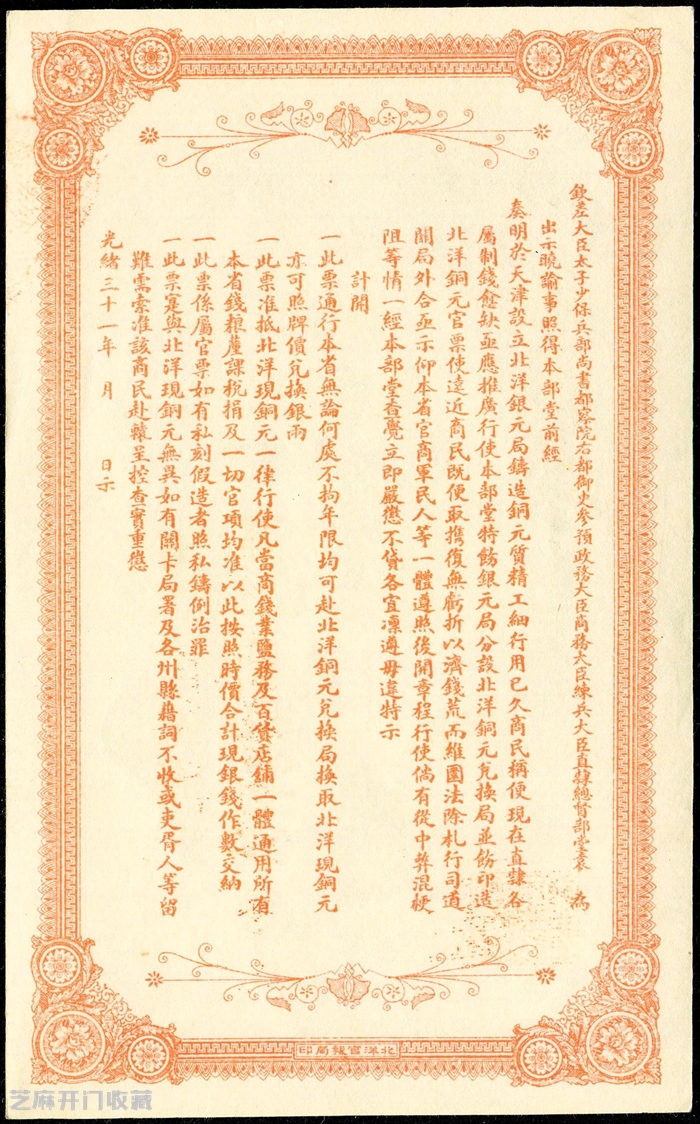 欽差大臣太子少保兵部尚書都察院右都御史參預政務大臣商務大臣練兵大臣直隸總督部堂袁　為
出示曉諭事照得本部堂前經
奏明於天津設立北洋銀元局鑄造銅元質精工細行用已久商民稱便現在直隸各
屬制錢愈缺亟應推廣行使本部堂特飭銀元局分設北洋銅元兌換局並飭印造
北洋銅元官票使遠近商民既便取攜復無虧折以濟錢荒而維圜法除札行司道
關局外合亟示仰本省官商軍民人等一體遵照後開章程行使倘有從中弊混梗
阻等情一經本部堂查覺立即嚴懲不貸各宜凜遵毋違特示
計開
一此票通行本省無論何處不拘年限均可赴北洋銅元兌換局換取北洋現銅元
亦可照牌價兌換銀兩
一此票准抵北洋現銅元一律行使凡當商錢業鹽務及百貨店鋪一體通用所有
本省錢糧釐課稅捐及一切官項均准以此按照時價合計現銀錢作數交納
一此票係屬官票如有私刻假造者照私鑄例治罪
一此票寔與北洋現銅元無異如有關卡局署及各州縣藉詞不收或吏胥人等留
難需索准該商民赴轅呈控查實重懲
光緒三十一年　月　　日示
北洋官報局印
芝麻开门收藏